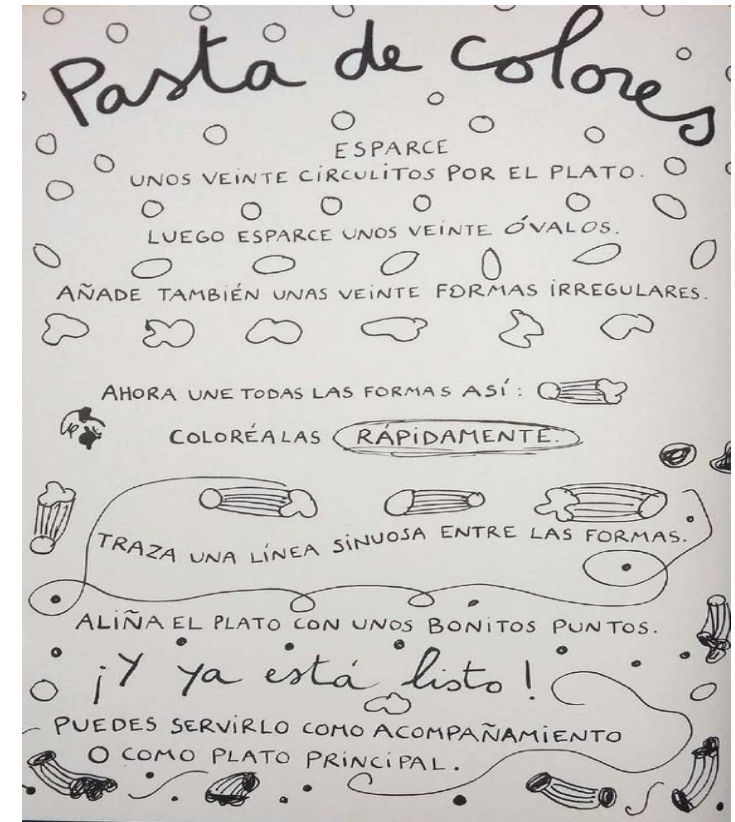 Pasta de colores
ESPARCE
UNOS VEINTE CÍRCULITOS POR EL PLATO.
LUEGO ESPARCE UNOS VEINTE ÓVALOS.
AÑADE TAMBIÉN UNAS VEINTE FORMAS IRREGULARES.
AHORA UNE TODAS LAS FORMAS ASÍ:
COLORÉALAS RÁPIDAMENTE.
TRAZA UNA LÍNEA SINUOSA ENTRE LAS FORMAS.
ALIÑA EL PLATO CON UNOS BONITOS PUNTOS.
¡Y ya está listo!
PUEDES SERVIRLO COMO ACOMPAÑAMIENTO
O COMO PLATO PRINCIPAL.